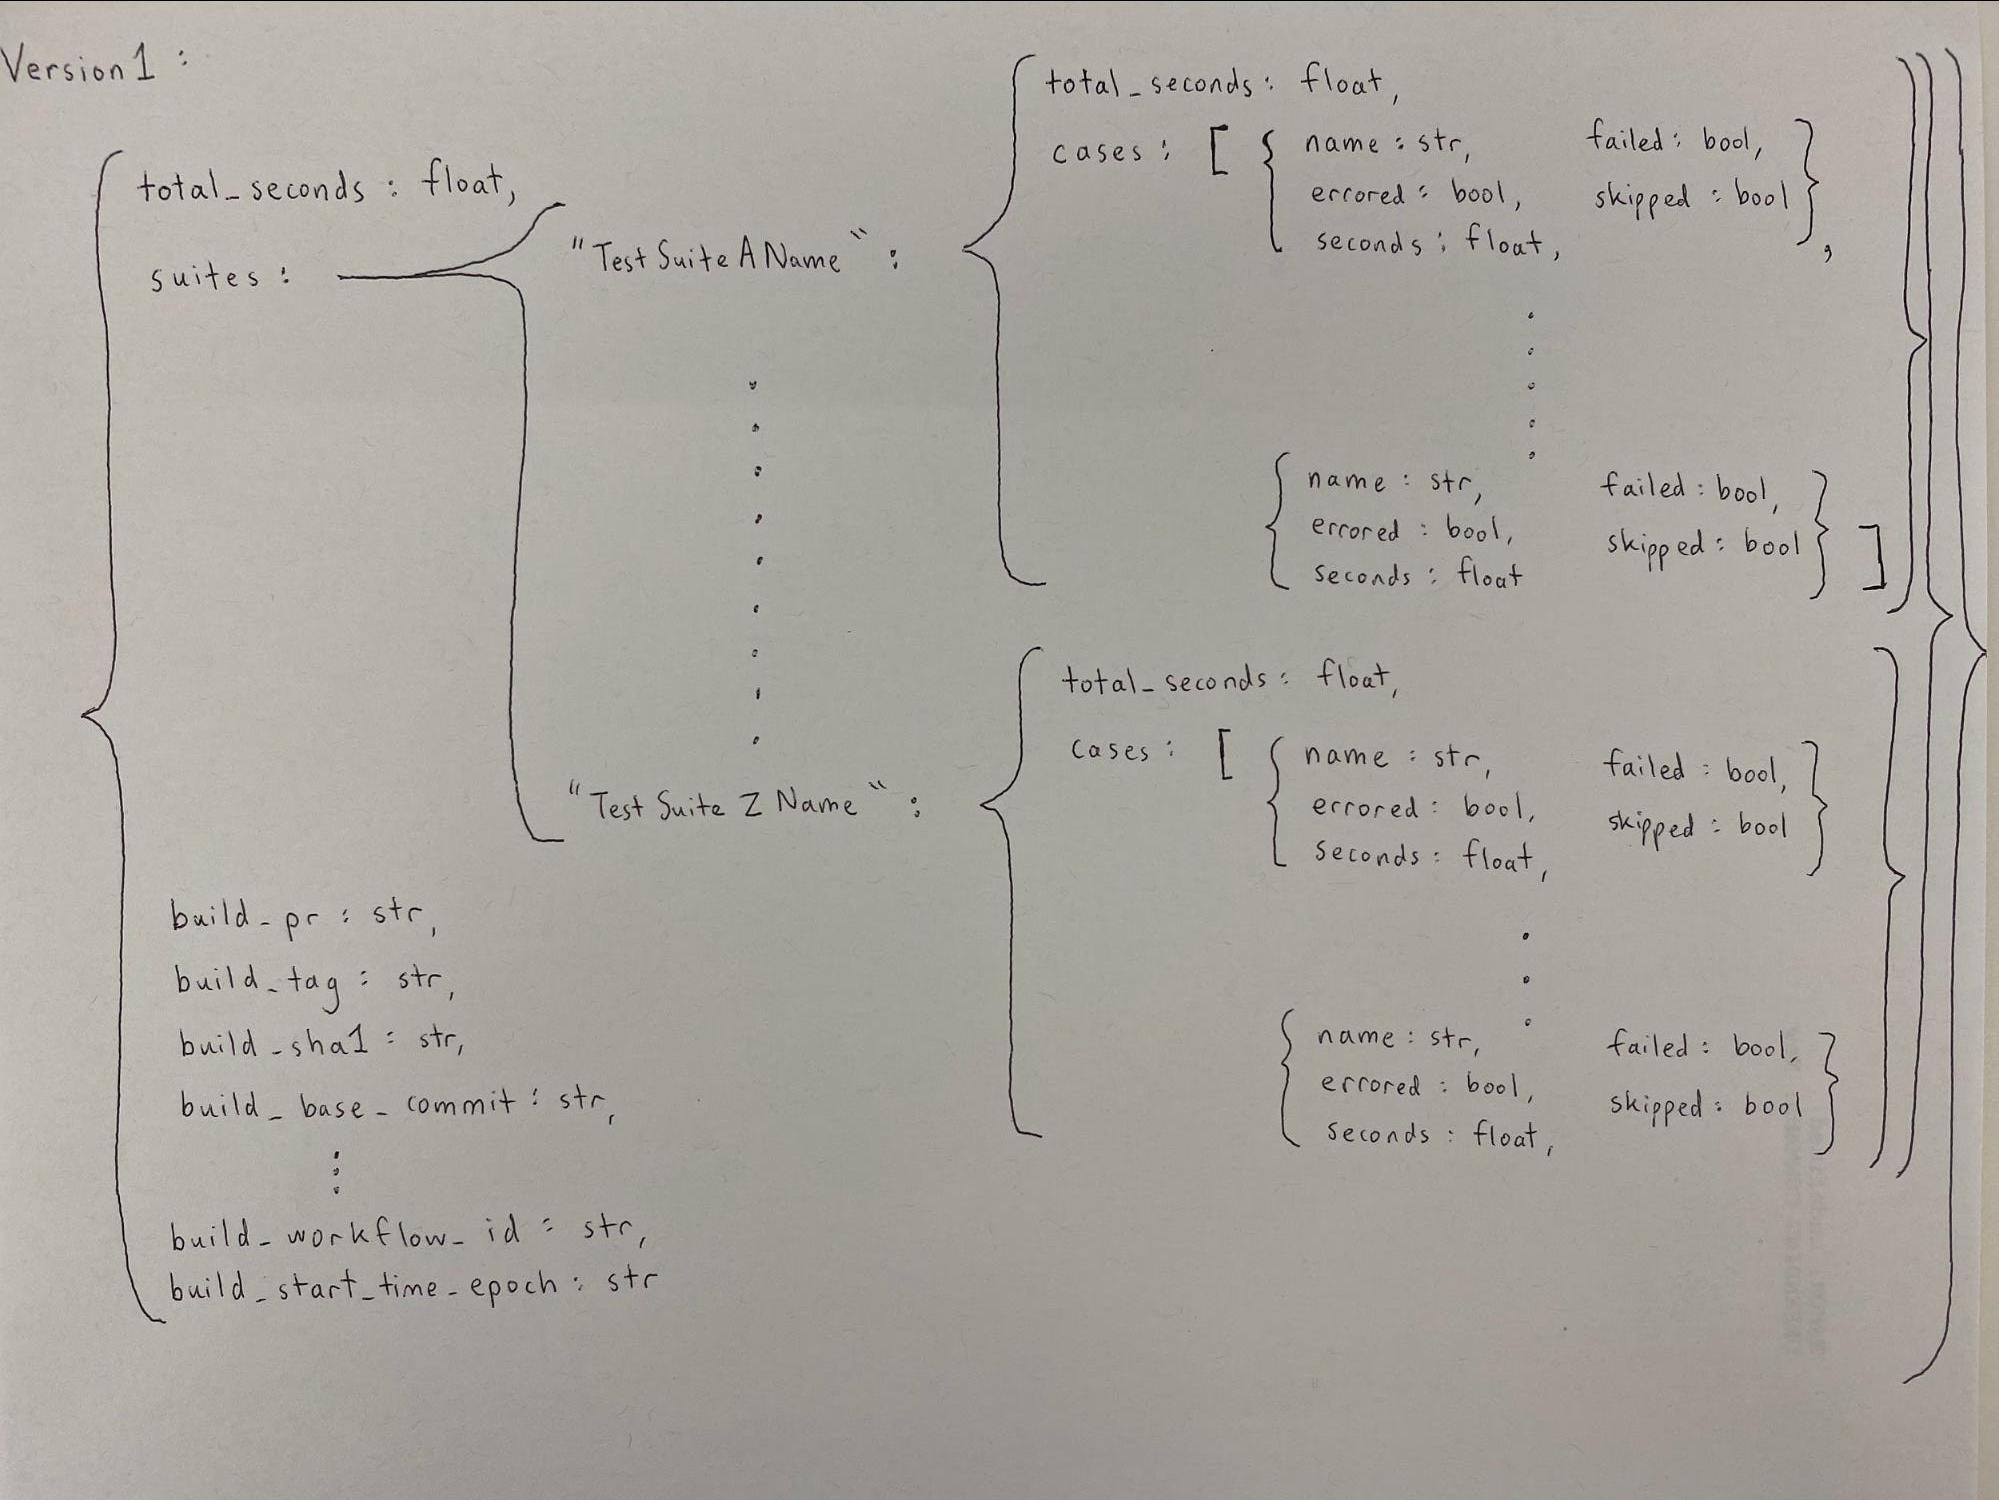 Version 1 :
{ total_seconds : float,
suites : { "Test Suite A Name" : { total_seconds : float,
cases : [ { name : str, failed : bool,
errored : bool, skipped : bool
seconds : float, },
{ name : str, failed : bool,
errored : bool, skipped : bool
seconds : float } ] }
"Test Suite Z Name" : { total_seconds : float,
cases : [ { name : str, failed : bool,
errored : bool, skipped : bool
seconds : float, }
{ name : str, failed : bool,
errored : bool, skipped : bool
seconds : float, } } }
build_pr : str,
build_tag : str,
build_sha1 : str,
build_base_commit : str,
build_workflow_id : str,
build_start_time_epoch : str }